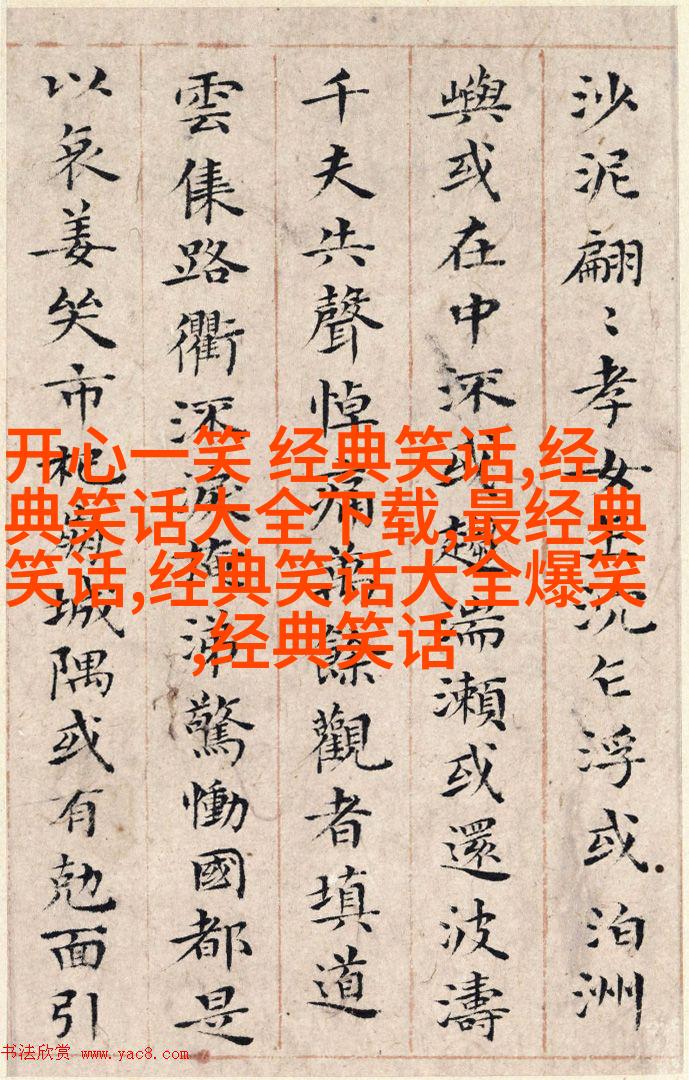 沙泥翩〻孝女乍沉乍浮或泊洲
嶼或在中流或趨湍瀨或還波濤
千夫失聲悼痛萬餘觀者填道
雲集路衢流淚掩涕驚慟國都是
以哀姜哭市杞崩城隅或有勊面引
开心一笑 经典笑话,经
典笑话大全下载,最经典
笑话,经典笑话大全爆笑
,经典笑话
书法欣赏 www.yac8.com